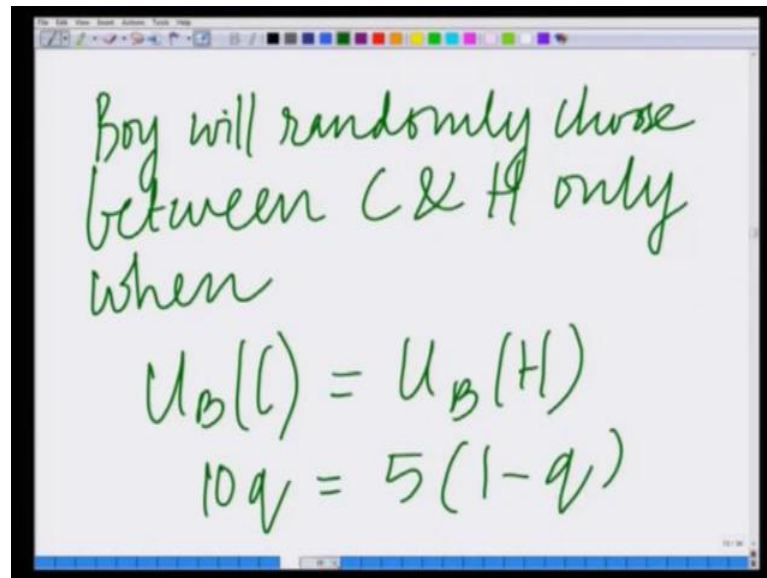 File Edit View Insert Actions Tools Help
Boy will randomly choose
between C & H only
when
U_B(C) = U_B(H)
10q = 5(1-q)